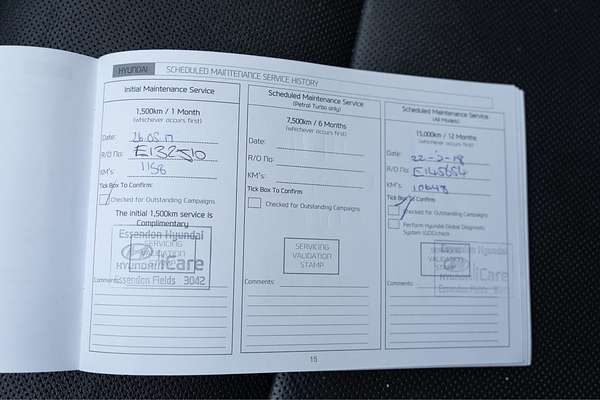 HYUNDAI SCHEDULED MAINTENANCE SERVICE HISTORY
Initial Maintenance Service
1,500km / 1 Month
(whichever occurs first)
Date: 26.05.17
R/O No: E132510
KM's: 1158
Tick Box To Confirm:
Checked for Outstanding Campaigns
The initial 1,500km service is
Complimentary
Essendon Hyundai
SERVICING
VALIDATION
STAMP
HYUNDAI iCare
Essendon Fields 3042
Comments:
Scheduled Maintenance Service
(Petrol Turbo only)
7,500km / 6 Months
(whichever occurs first)
Date:
R/O No:
KM's:
Tick Box To Confirm:
Checked for Outstanding Campaigns
SERVICING
VALIDATION
STAMP
Comments:
Scheduled Maintenance Service
(All Models)
15,000km / 12 Months
(whichever occurs first)
Date: 22-2-18
R/O No: E145654
KM's:
Tick Box To Confirm:
Checked for Outstanding Campaigns
Perform Hyundai Global Diagnostic
System (GDS) check
Essendon Hyundai
SERVICING
VALIDATION
STAMP
iCare
Essendon Fields
Comments:
15